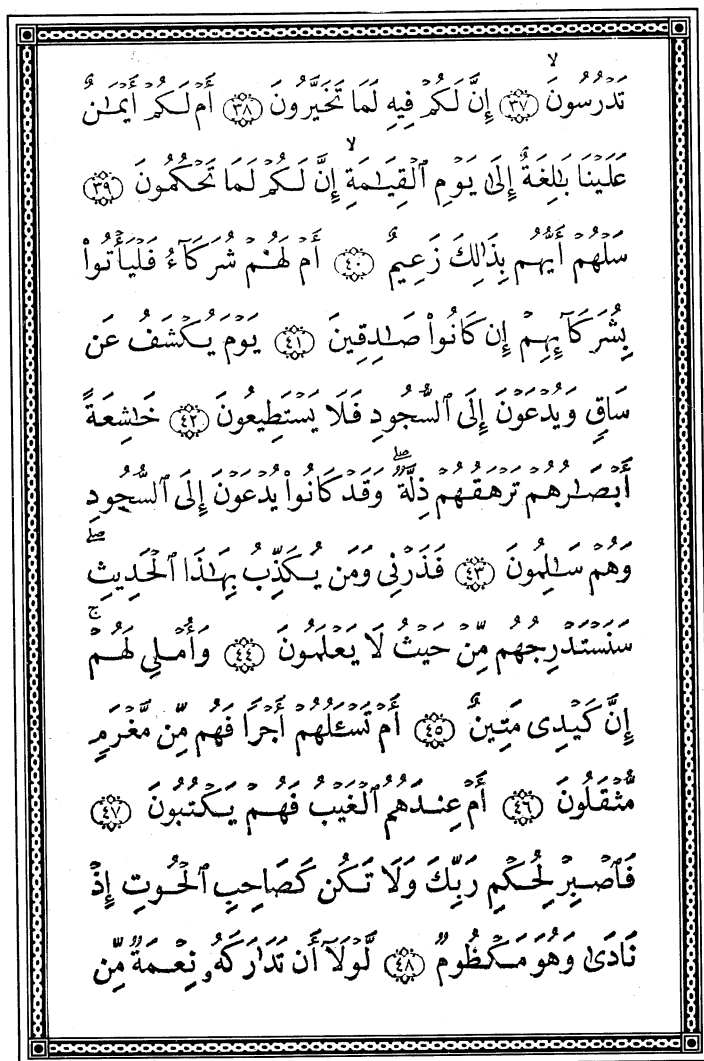 تَدْرُسُونَ ﴿٣٧﴾ إِنَّ لَكُمْ فِيهِ لَمَا تَخَيَّرُونَ ﴿٣٨﴾ أَمْ لَكُمْ أَيْمَٰنٌ
عَلَيْنَا بَٰلِغَةٌ إِلَىٰ يَوْمِ ٱلْقِيَٰمَةِ ۙ إِنَّ لَكُمْ لَمَا تَحْكُمُونَ ﴿٣٩﴾
سَلْهُمْ أَيُّهُم بِذَٰلِكَ زَعِيمٌ ﴿٤٠﴾ أَمْ لَهُمْ شُرَكَآءُ فَلْيَأْتُوا۟
بِشُرَكَآئِهِمْ إِن كَانُوا۟ صَٰدِقِينَ ﴿٤١﴾ يَوْمَ يُكْشَفُ عَن
سَاقٍ وَيُدْعَوْنَ إِلَى ٱلسُّجُودِ فَلَا يَسْتَطِيعُونَ ﴿٤٢﴾ خَٰشِعَةً
أَبْصَٰرُهُمْ تَرْهَقُهُمْ ذِلَّةٌ ۖ وَقَدْ كَانُوا۟ يُدْعَوْنَ إِلَى ٱلسُّجُودِ
وَهُمْ سَٰلِمُونَ ﴿٤٣﴾ فَذَرْنِى وَمَن يُكَذِّبُ بِهَٰذَا ٱلْحَدِيثِ ۖ
سَنَسْتَدْرِجُهُم مِّنْ حَيْثُ لَا يَعْلَمُونَ ﴿٤٤﴾ وَأُمْلِى لَهُمْ ۚ
إِنَّ كَيْدِى مَتِينٌ ﴿٤٥﴾ أَمْ تَسْـَٔلُهُمْ أَجْرًا فَهُم مِّن مَّغْرَمٍ
مُّثْقَلُونَ ﴿٤٦﴾ أَمْ عِندَهُمُ ٱلْغَيْبُ فَهُمْ يَكْتُبُونَ ﴿٤٧﴾
فَٱصْبِرْ لِحُكْمِ رَبِّكَ وَلَا تَكُن كَصَاحِبِ ٱلْحُوتِ إِذْ
نَادَىٰ وَهُوَ مَكْظُومٌ ﴿٤٨﴾ لَّوْلَآ أَن تَدَٰرَكَهُۥ نِعْمَةٌ مِّن